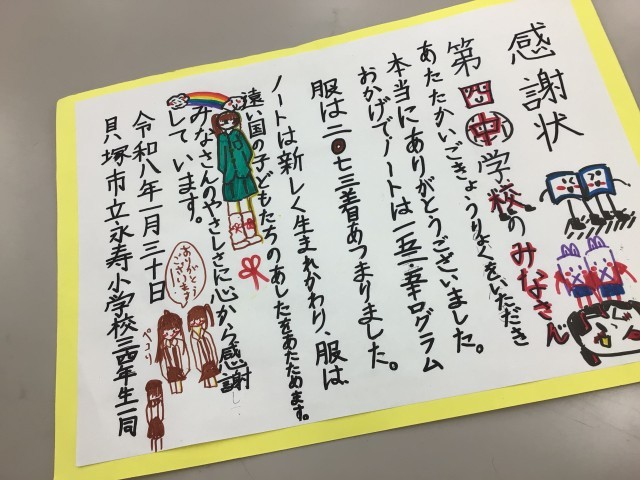 感謝状
第四中学校のみなさん
あたたかいごきょうりょくをいただき
本当にありがとうございました。
おかげでノートは一五二・幸ログラム
服は二〇七三着あつまりました。
ノートは新しく生まれかわり、服は
遠い国の子どもたちのあしたをあたためます。
みなさんのやさしさに心から感謝し
しています。
令和八年一月三十日
貝塚市立永寿小学校三四年生一同
ありがとうございます!
ペコリ